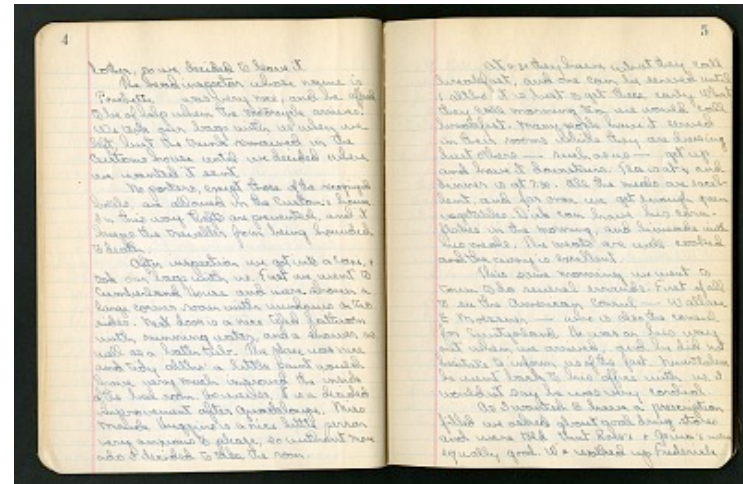 4
bother, so we decided to leave it
The head inspector whose name is
was very nice, and he offered
to be of help when the motorcycle arrives.
We took our bags with us when we
left, but the trunk remained in the
Customs house until we decided where
we wanted it sent.
No porters, except those of the recognized
hotels, are allowed in the Custom's house
In this way thefts are prevented, and it
keeps the traveller from being hounded
to death.
After inspection we got into a
took our bags with us. First we went to
Cumberland House and were shown a
large corner room with windows on two
sides. Next door is a nice tiled bathroom
with running water, and a shower as
well as a bath tub. The place was nice
and tidy altho' a little paint would
have very much improved the inside
of the bed room. However, it is a decided
improvement after Guadeloupe. Miss
Huggins is a nice little person
very anxious to please, so without more
ado I decided to take the room.
5
they have what they call
breakfast, and one can be served until
It is best to get there early. What
they call morning tea we would call
breakfast. Many people have it served
in their rooms while they are dressing
but others — such as us — get up
and have it downstairs. Tea is at 4 and
dinner is at 7.30. All the meals are excel-
lent, and for once we get enough green
vegetables. can have his corn-
flakes in the morning, and with
his meals. The meats are well cooked
and the curry is excellent.
This same morning we went to
town to do several errands. First of all
to see the American Consul —
— who is also the consul
for Switzerland. He was on his way
out when we arrived, and he did not
hesitate to inform us of the fact. Nevertheless
he went back to his office with us. I
wouldn't say he was very cordial.
As I wanted to have a prescription
filled we asked about good drug stores
and were told that were
equally good. We walked up Frederick